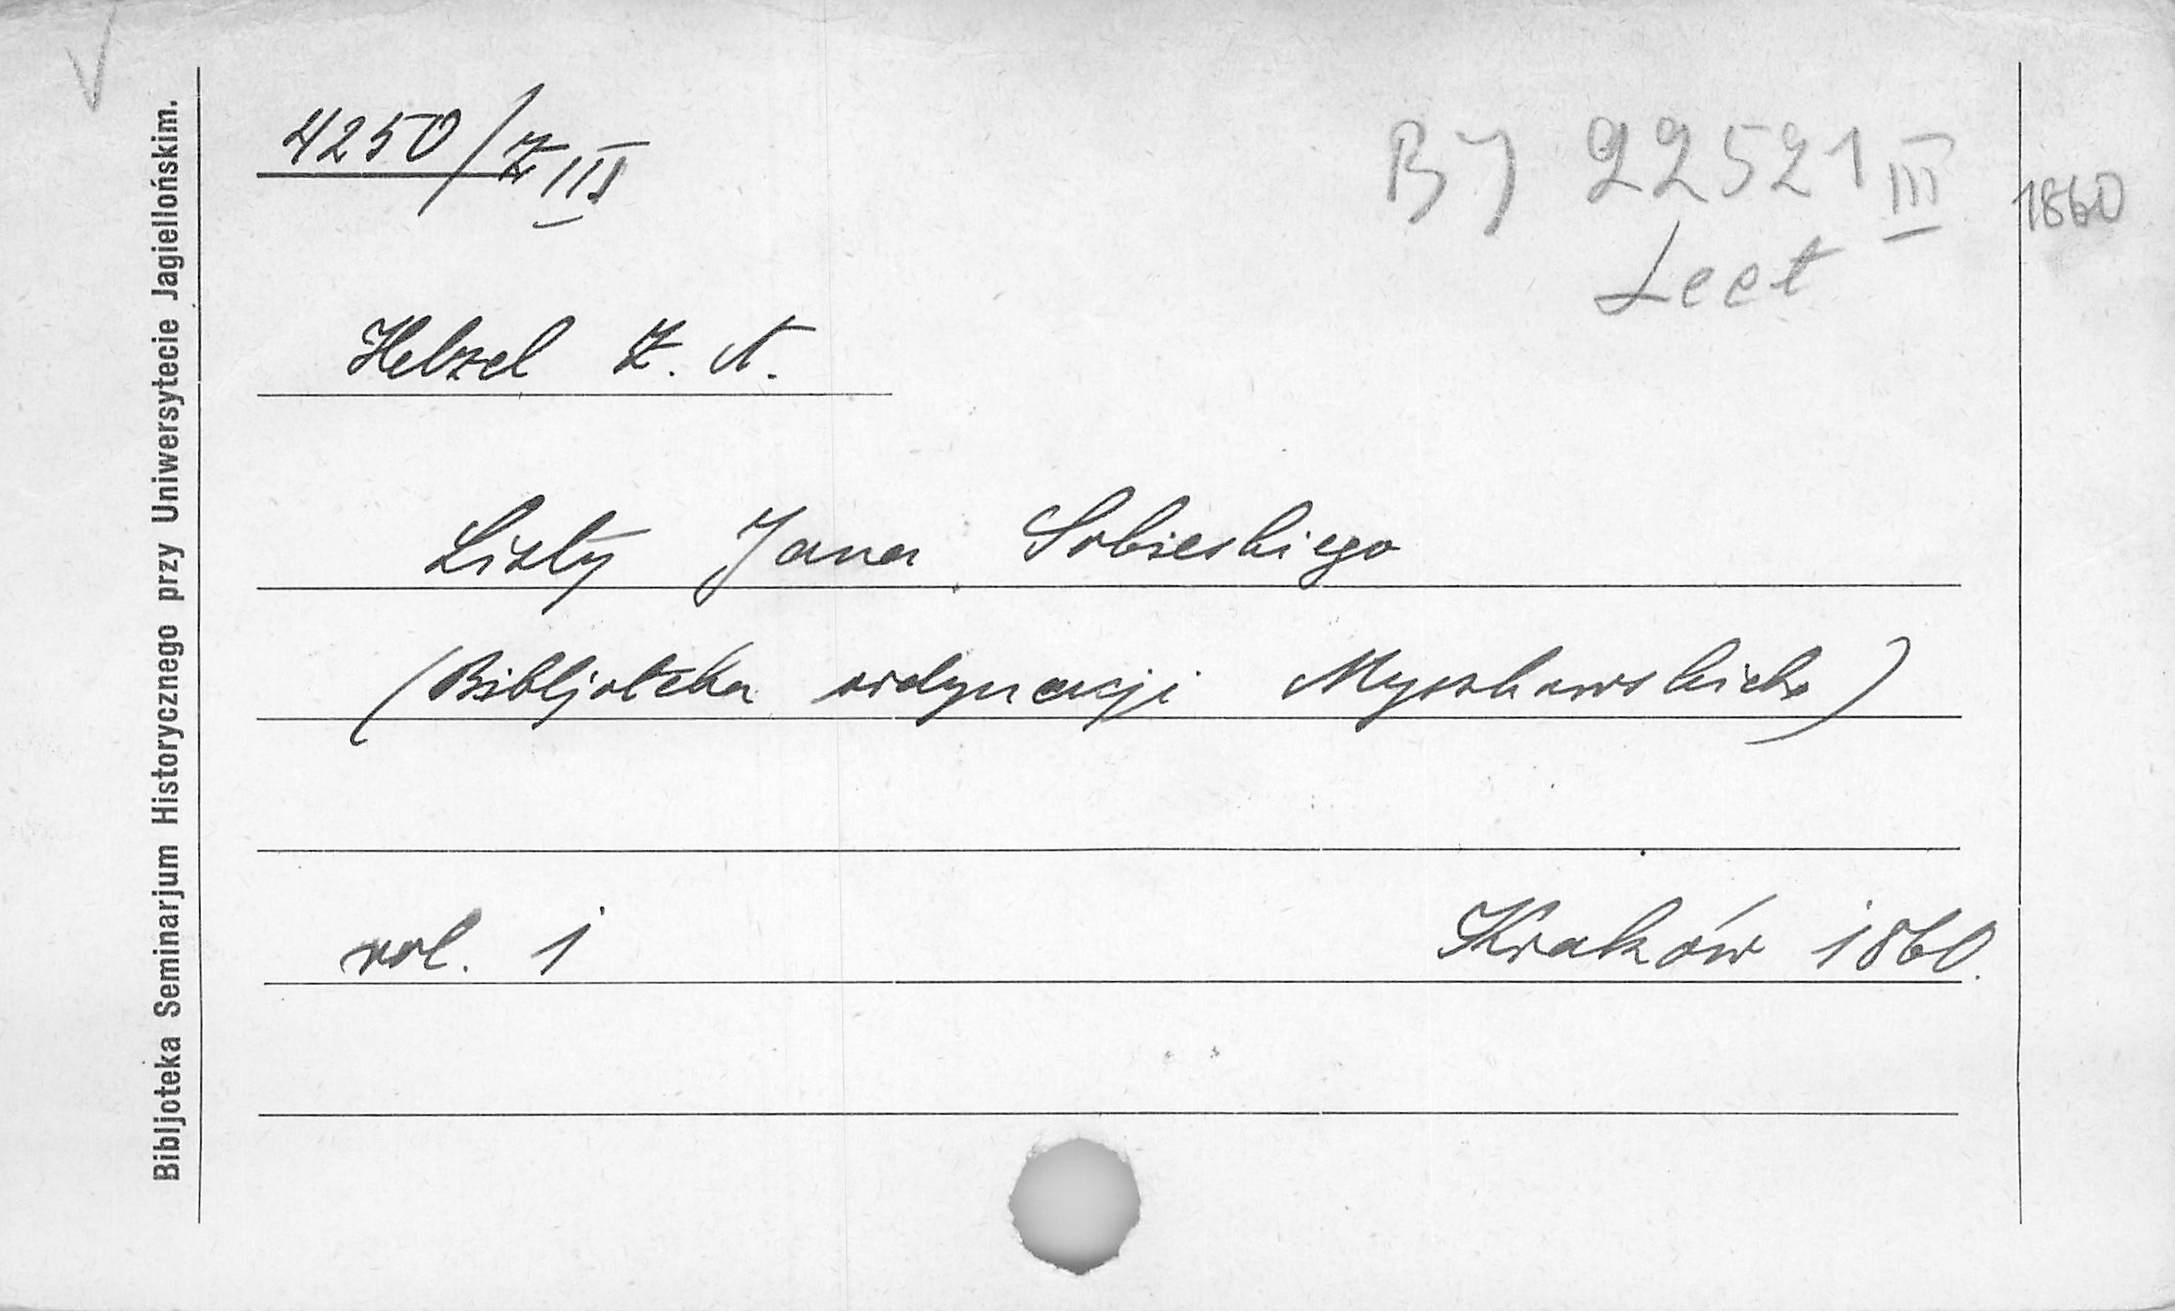 Bibljoteka Seminarjum Historycznego przy Uniwersytecie Jagiellońskim.
4250/Z III
BJ 22521 III
Lect
1860
Helzel Z. A.
Listy Jana Sobieskiego
(Bibljoteka ordynacji Myszkowskich)
vol. 1 Kraków 1860.